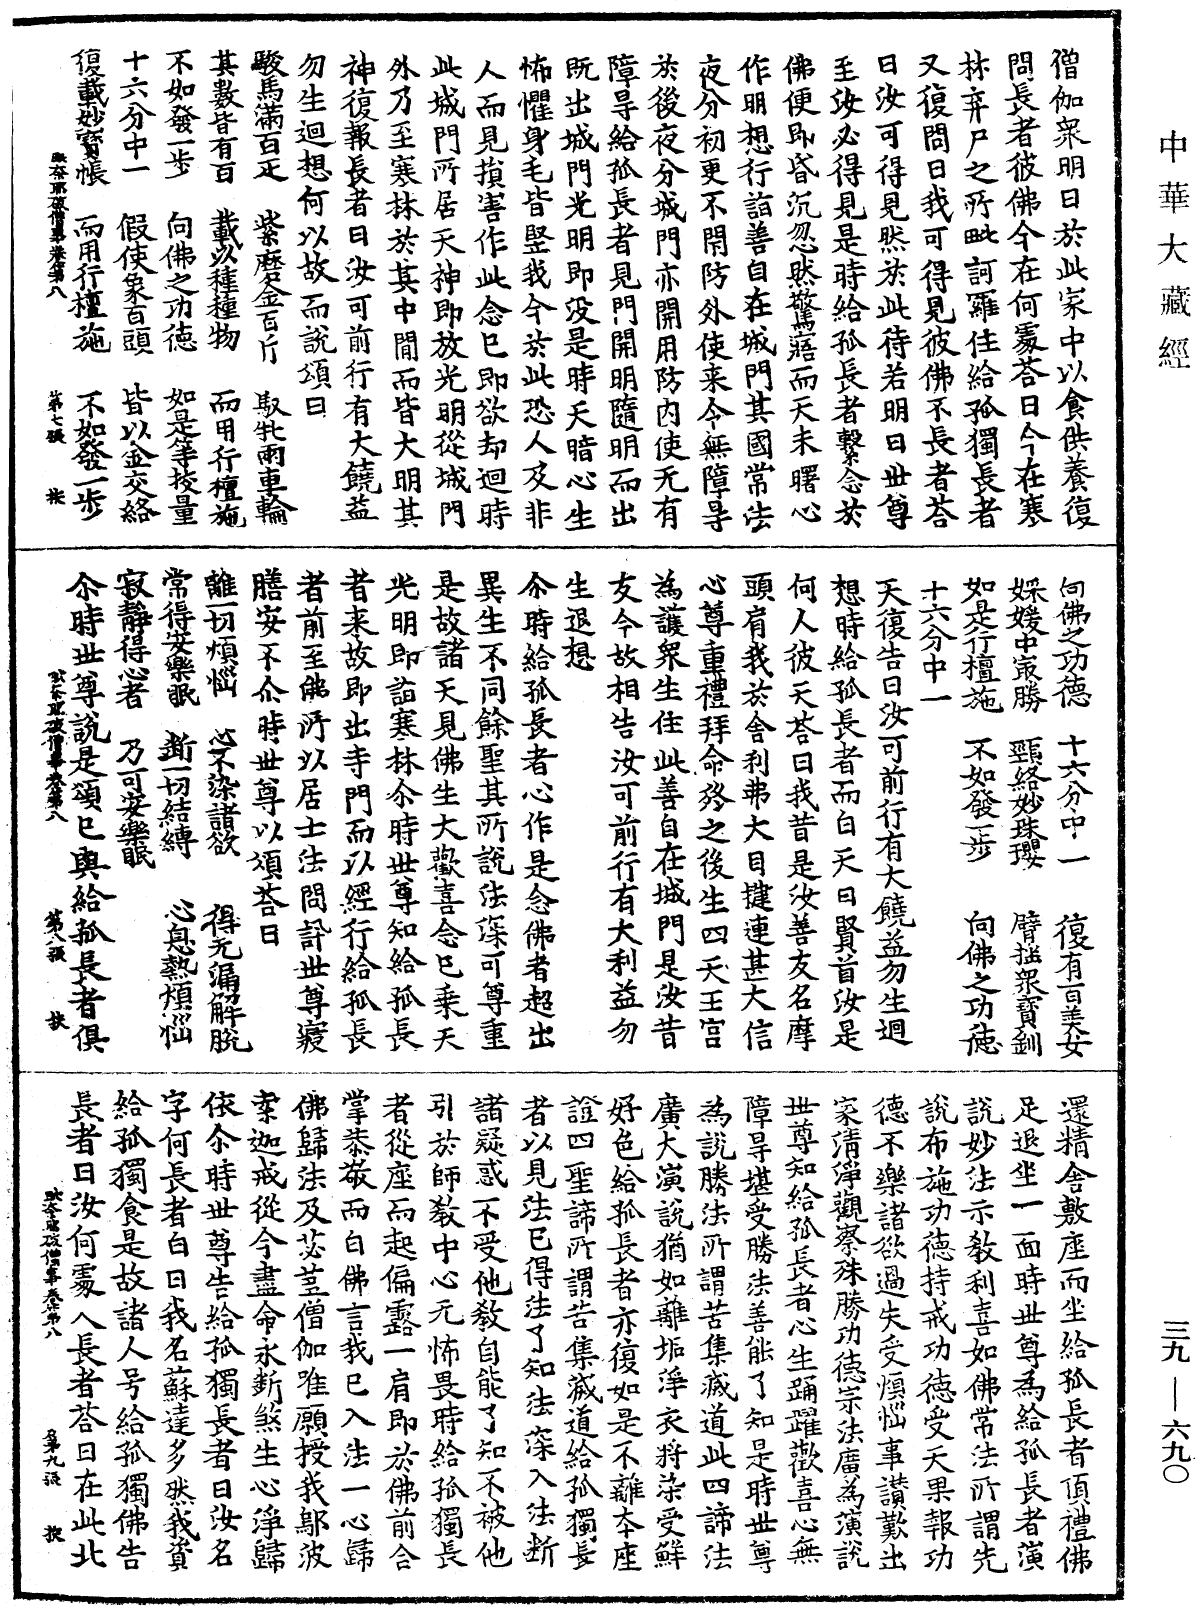 中華大藏經
僧伽衆明日於此家中以食供養復
問長者彼佛今在何處荅曰今在寒
林弃尸之所毗訶羅住給孤獨長者
又復問曰我可得見彼佛不長者荅
曰汝可得見然於此待若明日世尊
至汝必得見是時給孤長者繫念於
佛便即昏沉忽然驚寤而天未曙心
作明想行詣善自在城門其國常法
夜分初更不閇防外使来令無障㝵
於後夜分城門亦開用防内使无有
障㝵給孤長者見門開明隨明而出
既出城門光明即没是時天暗心生
怖懼身毛皆竪我今於此恐人及非
人而見損害作此念已即欲却迴時
此城門所居天神即放光明從城門
外乃至寒林於其中間而皆大明其
神復報長者曰汝可前行有大饒益
勿生迴想何以故而說頌曰
駿馬滿百疋　紫磨金百斤　馭牝兩車輪
其數皆有百　載以種種物　而用行檀施
不如發一步　向佛之功德　如是等挍量
十六分中一　假使象百頭　皆以金交絡
復載妙寶帳　而用行檀施　不如發一步
破僧事卷第八　第七張　枝
向佛之功德　十六分中一　復有百美女
婇媛中㝡勝　頸絡妙珠瓔　臂𢹂衆寶釧
如是行檀施　不如發一步　向佛之功德
十六分中一
天復告曰汝可前行有大饒益勿生迴
想時給孤長者而白天曰賢首汝是
何人彼天荅曰我昔是汝善友名摩
頭肩我於舍利弗大目揵連甚大信
心尊重禮拜命終之後生四天王宮
為護衆生住此善自在城門是汝昔
友今故相告汝可前行有大利益勿
生退想
尒時給孤長者心作是念佛者超出
異生不同餘聖其所說法深可尊重
是故諸天見佛生大歡喜念已乗天
光明即詣寒林尒時世尊知給孤長
者来故即出寺門而以經行給孤長
者前至佛所以居士法問訊世尊寢
膳安不尒時世尊以頌荅曰
離一切煩惱　心不染諸欲　得无漏解脫
常得安樂眠　斷一切結縛　心息熱煩惱
寂靜得心者　乃可安樂眠
尒時世尊說是頌已與給孤長者俱
破僧事卷第八　第八張　枝
還精舍敷座而坐給孤長者頂禮佛
足退坐一面時世尊為給孤長者演
說妙法示教利喜如佛常法所謂先
說布施功德持戒功德受天果報功
德不樂諸欲過失受煩惱事讃歎出
家清淨觀察殊勝功德宗法廣為演說
世尊知給孤長者心生踊躍歡喜心無
障㝵堪受勝法善能了知是時世尊
為說勝法所謂苦集滅道此四諦法
廣大演說猶如離垢淨衣將染受鮮
好色給孤長者亦復如是不離本座
證四聖諦所謂苦集滅道給孤獨長
者以見法已得法了知法深入法斷
諸疑惑不受他教自能了知不被他
引於師教中心无怖畏時給孤獨長
者從座而起偏露一肩即於佛前合
掌恭敬而白佛言我已入法一心歸
佛歸法及苾芻僧伽唯願授我鄔波
索迦戒從今盡命永斷煞生心淨歸
依尒時世尊告給孤獨長者曰汝名
字何長者白曰我名蘇達多然我資
給孤獨食是故諸人号給孤獨佛告
長者曰汝何處人長者荅曰在此北
破僧事卷第八　第九張　枝
三九—六九〇